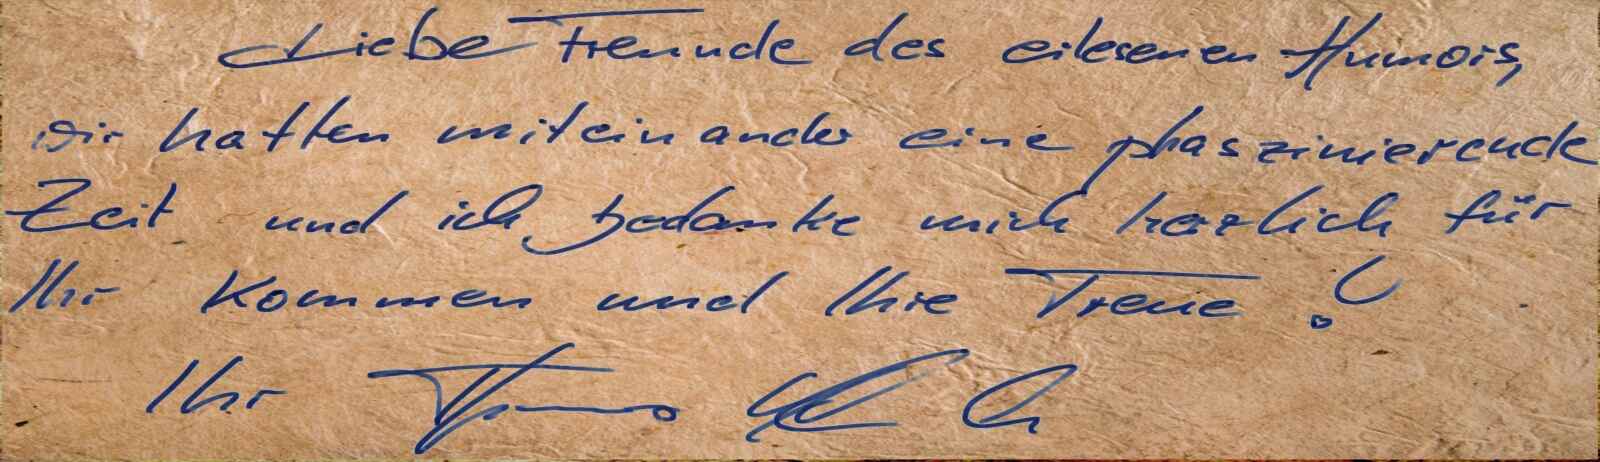 Liebe Freunde des erlesenen Humors,
wir hatten miteinander eine phaszinierende
Zeit und ich bedanke mich herzlich für
Ihr Kommen und Ihre Treue!
Ihr